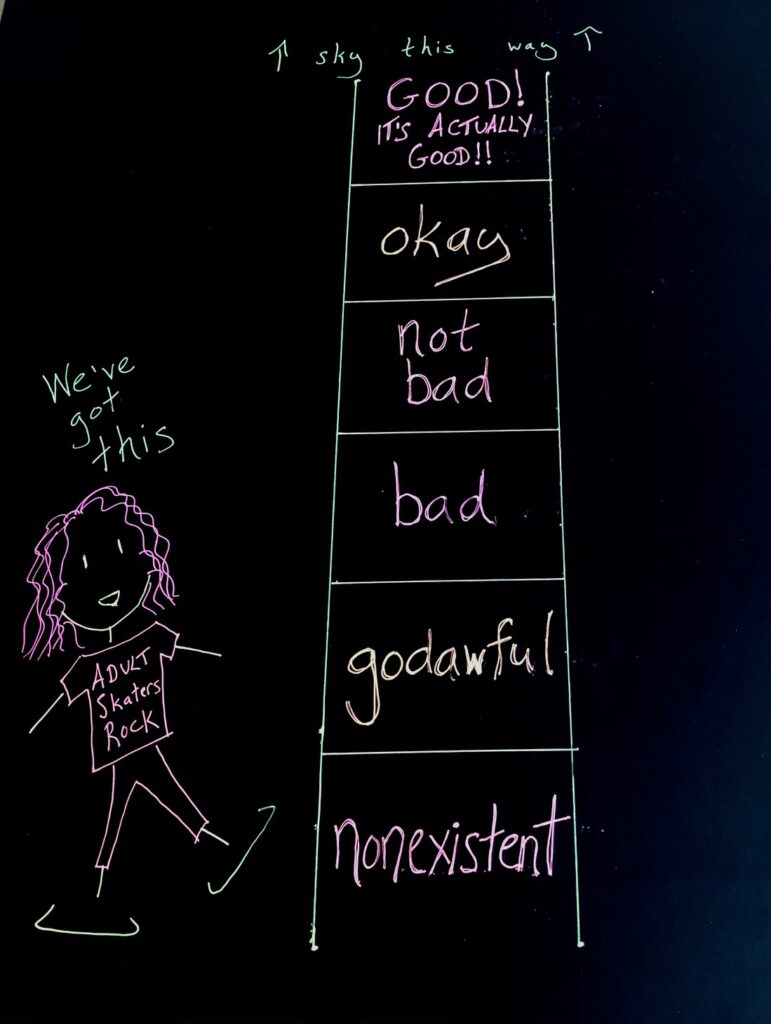 ↑ sky this way ↑
GOOD!
IT'S ACTUALLY
GOOD!!
okay
not
bad
bad
godawful
nonexistent
We've
got
this
ADULT
Skaters
ROCK